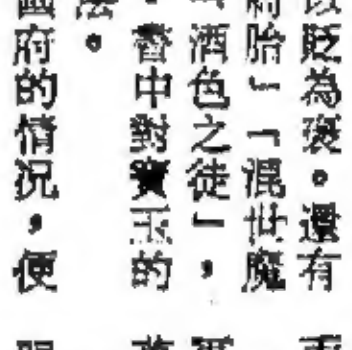 貶為褒。還有
胎」「混世魔
酒色之徒」,
書中對寶玉的
法。
國府的情況,便